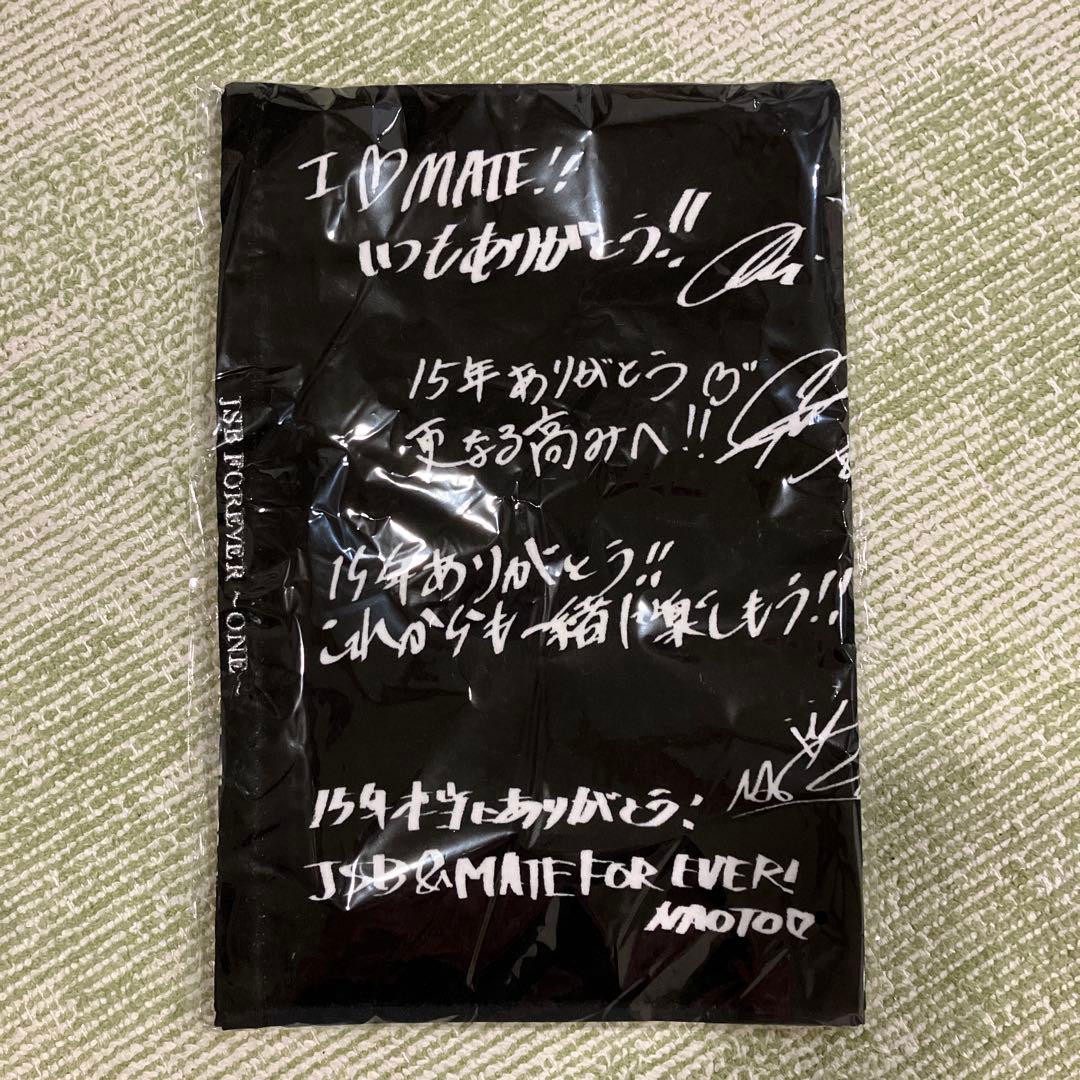 I ♡ MATE!!
いつもありがとう!!
15年ありがとう♡
更なる高みへ!!
15年ありがとう!!
これからも一緒に楽しもう!!
15年本当にありがとう!
JSB & MATE FOR EVER!
NAOTO♡
JSB FOREVER ~ONE~